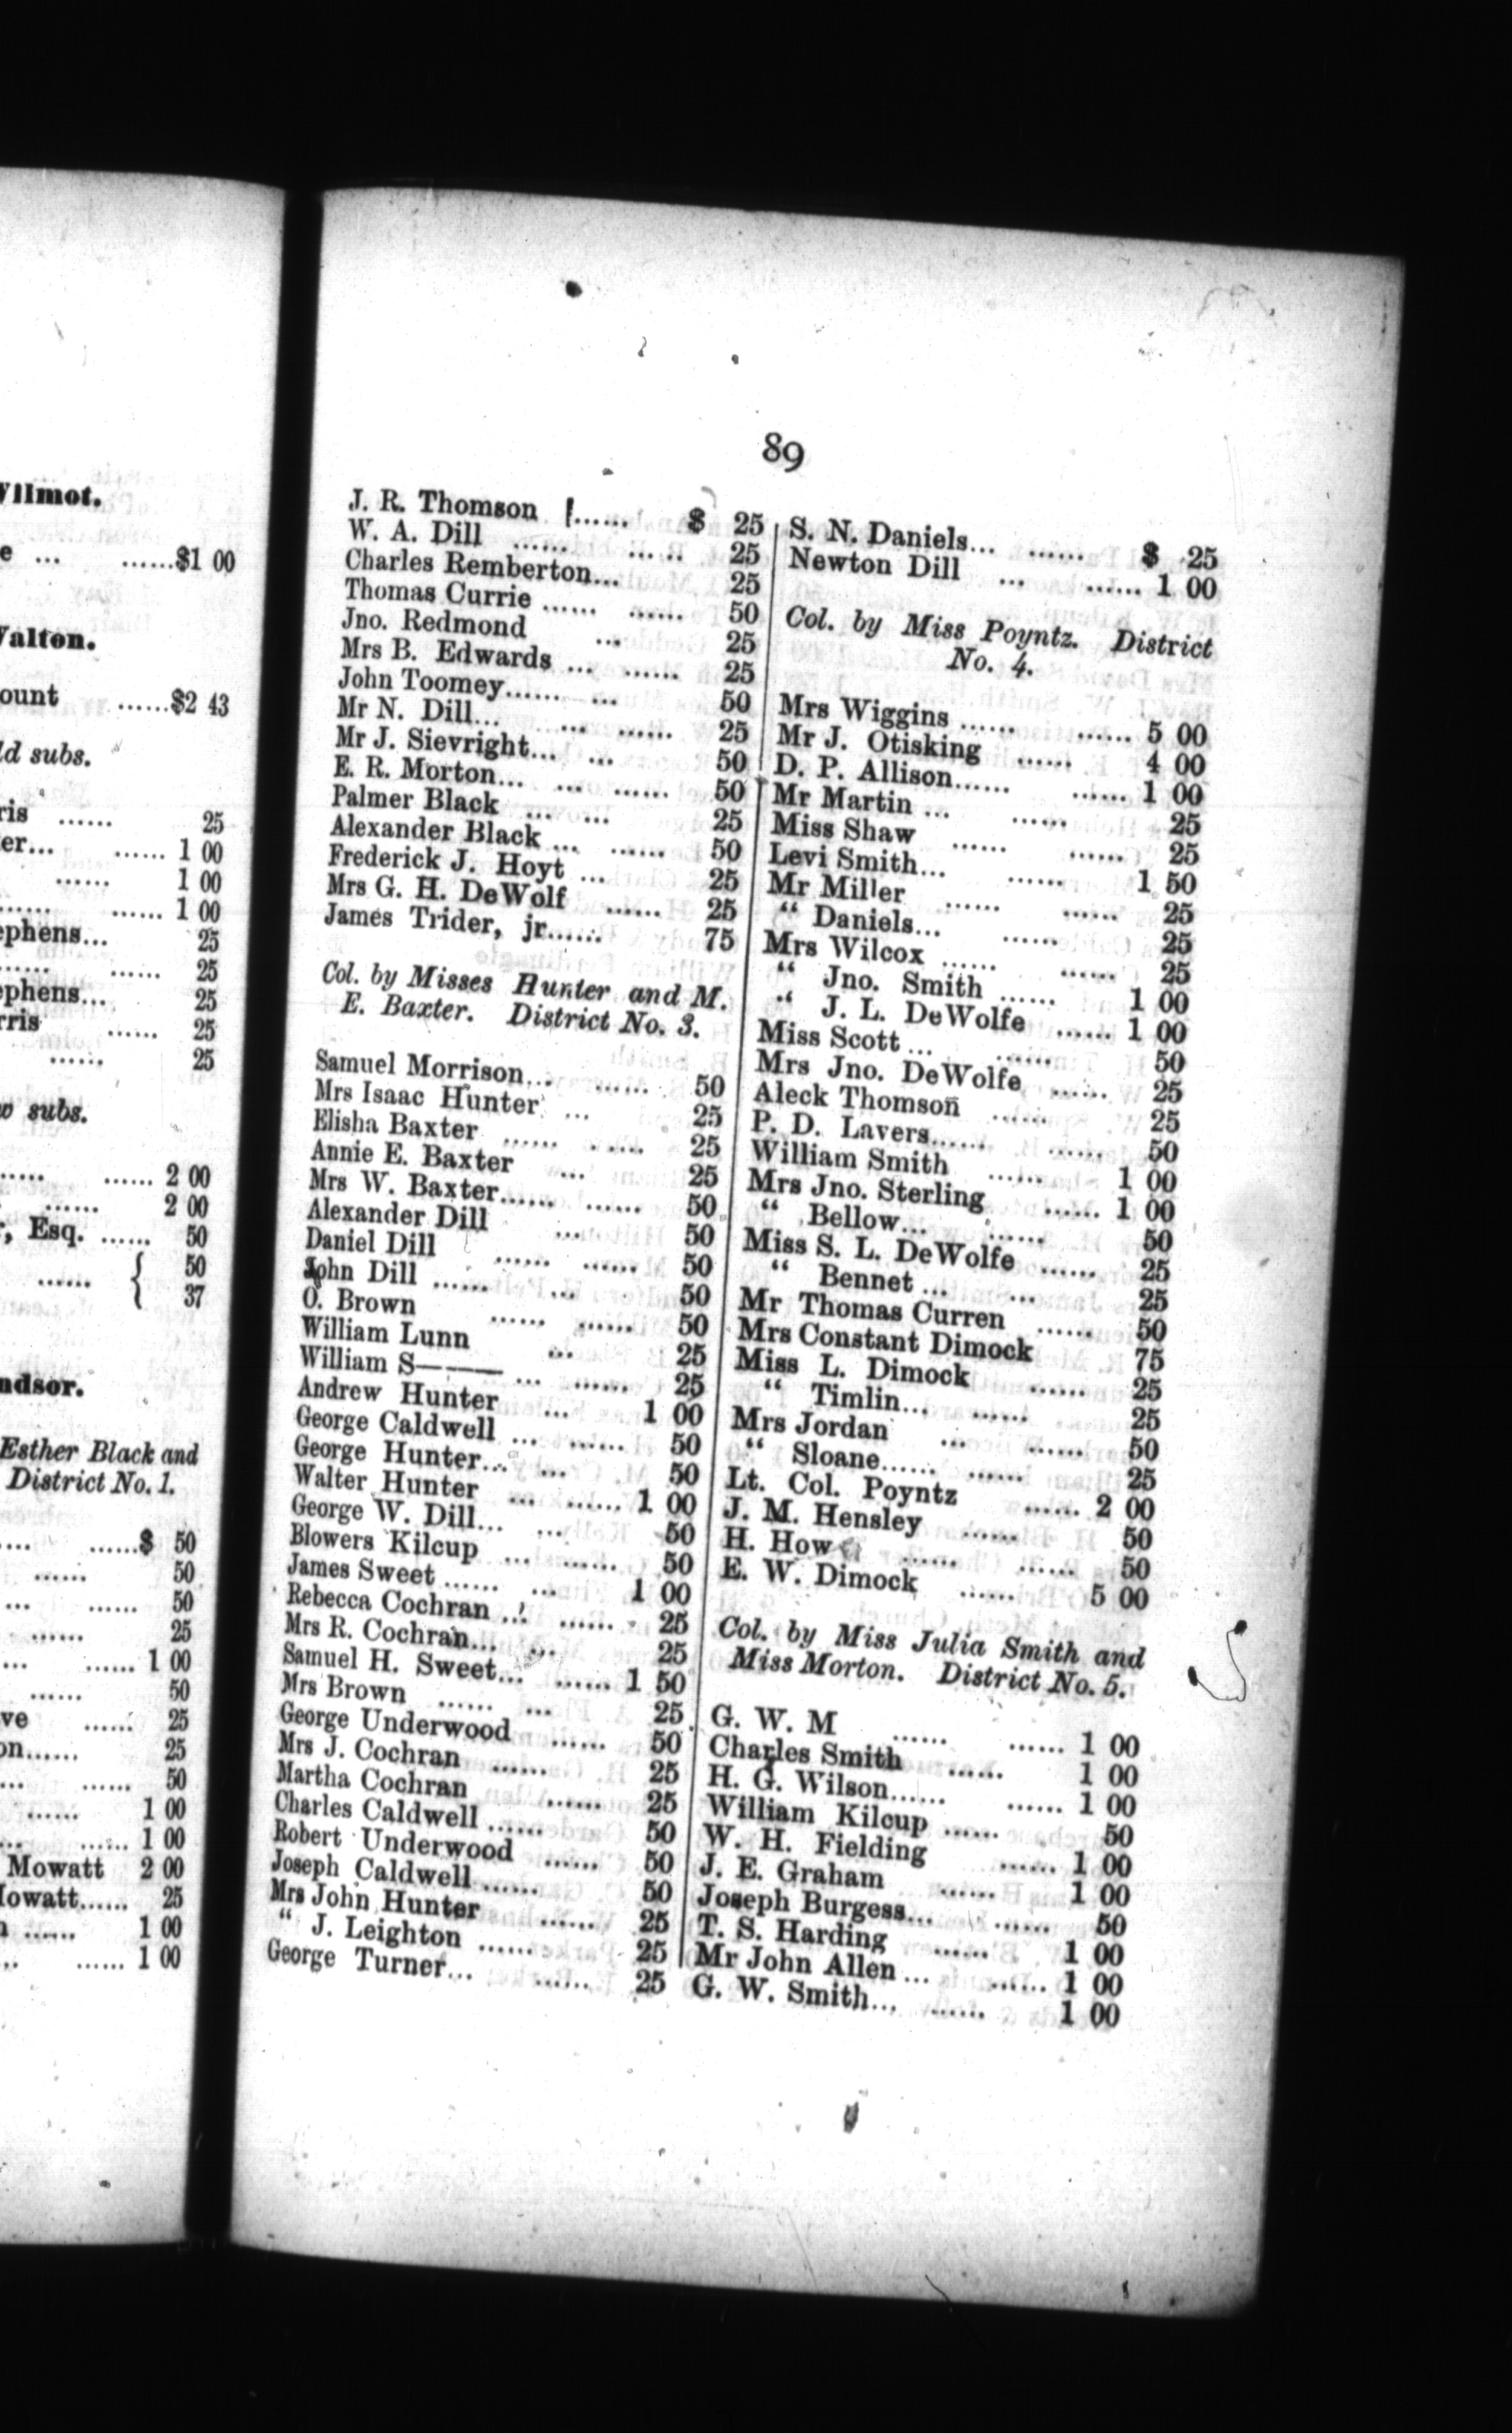 Wilmot.
e ... ......$1 00
Walton.
ount ......$2 43
ld subs.
ris ...... 25
er... ...... 1 00
...... 1 00
...... ...... 1 00
ephens... 25
...... ...... 25
ephens... 25
rris ...... 25
...... 25
w subs.
...... ...... 2 00
...... 2 00
, Esq. ...... 50
...... { 50
37
ndsor.
Esther Black and
District No. 1.
.... ......$ 50
...... 50
... ...... 50
...... 25
... ...... 1 00
...... 50
ve ...... 25
on...... 25
... ...... 50
...... 1 00
... ...... 1 00
Mowatt 2 00
Mowatt...... 25
...... 1 00
... ...... 1 00
89
J. R. Thomson ...... $ 25
W. A. Dill ...... ... .. 25
Charles Remberton... 25
Thomas Currie ...... ...... 50
Jno. Redmond ... 25
Mrs B. Edwards ... ...... 25
John Toomey...... ... 50
Mr N. Dill... ... ...... 25
Mr J. Sievright... ... 50
E. R. Morton... ... ...... 50
Palmer Black ... ... 25
Alexander Black ... ...... 50
Frederick J. Hoyt ... 25
Mrs G. H. DeWolf ...... 25
James Trider, jr...... 75
Col. by Misses Hunter and M.
E. Baxter. District No. 3.
Samuel Morrison... ...... 50
Mrs Isaac Hunter ... 25
Elisha Baxter ...... ...... 25
Annie E. Baxter ... 25
Mrs W. Baxter...... ...... 50
Alexander Dill ... 50
Daniel Dill ...... ...... 50
John Dill ...... ... 50
O. Brown ...... ...... 50
William Lunn ... 25
William S——— ... ...... 25
Andrew Hunter ... 1 00
George Caldwell ... ...... 50
George Hunter... ... 50
Walter Hunter ... ...... 1 00
George W. Dill... ... 50
Blowers Kilcup ... ...... 50
James Sweet ...... ... 1 00
Rebecca Cochran ... ...... 25
Mrs R. Cochran... ... 25
Samuel H. Sweet... ...... 1 50
Mrs Brown ...... ... 25
George Underwood ...... 50
Mrs J. Cochran ...... 25
Martha Cochran ...... 25
Charles Caldwell ...... 50
Robert Underwood ...... 50
Joseph Caldwell ...... 50
Mrs John Hunter ...... 25
“ J. Leighton ...... 25
George Turner... ...... 25
S. N. Daniels... ...... $ 25
Newton Dill ... ...... 1 00
Col. by Miss Poyntz. District
No. 4.
Mrs Wiggins ...... ...... 5 00
Mr J. Otisking ...... 4 00
D. P. Allison...... ...... 1 00
Mr Martin ... ...... 25
Miss Shaw ...... ...... 25
Levi Smith... ...... 1 50
Mr Miller ...... ...... 25
“ Daniels... ...... 25
Mrs Wilcox ...... ...... 25
“ Jno. Smith ...... 1 00
“ J. L. DeWolfe ...... 1 00
Miss Scott ... ...... 50
Mrs Jno. DeWolfe ...... 25
Aleck Thomson ...... 25
P. D. Lavers...... ...... 50
William Smith ...... 1 00
Mrs Jno. Sterling ...... 1 00
“ Bellow... ...... 50
Miss S. L. DeWolfe ...... 25
“ Bennet ... ... 25
Mr Thomas Curren ...... 50
Mrs Constant Dimock 75
Miss L. Dimock ...... 25
“ Timlin... ...... 25
Mrs Jordan ... ...... 50
“ Sloane...... ...... 25
Lt. Col. Poyntz ...... 2 00
J. M. Hensley ...... 50
H. How ...... ...... 50
E. W. Dimock ...... 5 00
Col. by Miss Julia Smith and
Miss Morton. District No. 5.
G. W. M ...... ...... 1 00
Charles Smith ...... 1 00
H. G. Wilson...... ...... 1 00
William Kilcup ...... 50
W. H. Fielding ...... 1 00
J. E. Graham ...... 1 00
Joseph Burgess... ...... 50
T. S. Harding ...... 1 00
Mr John Allen ... ...... 1 00
G. W. Smith... ...... 1 00